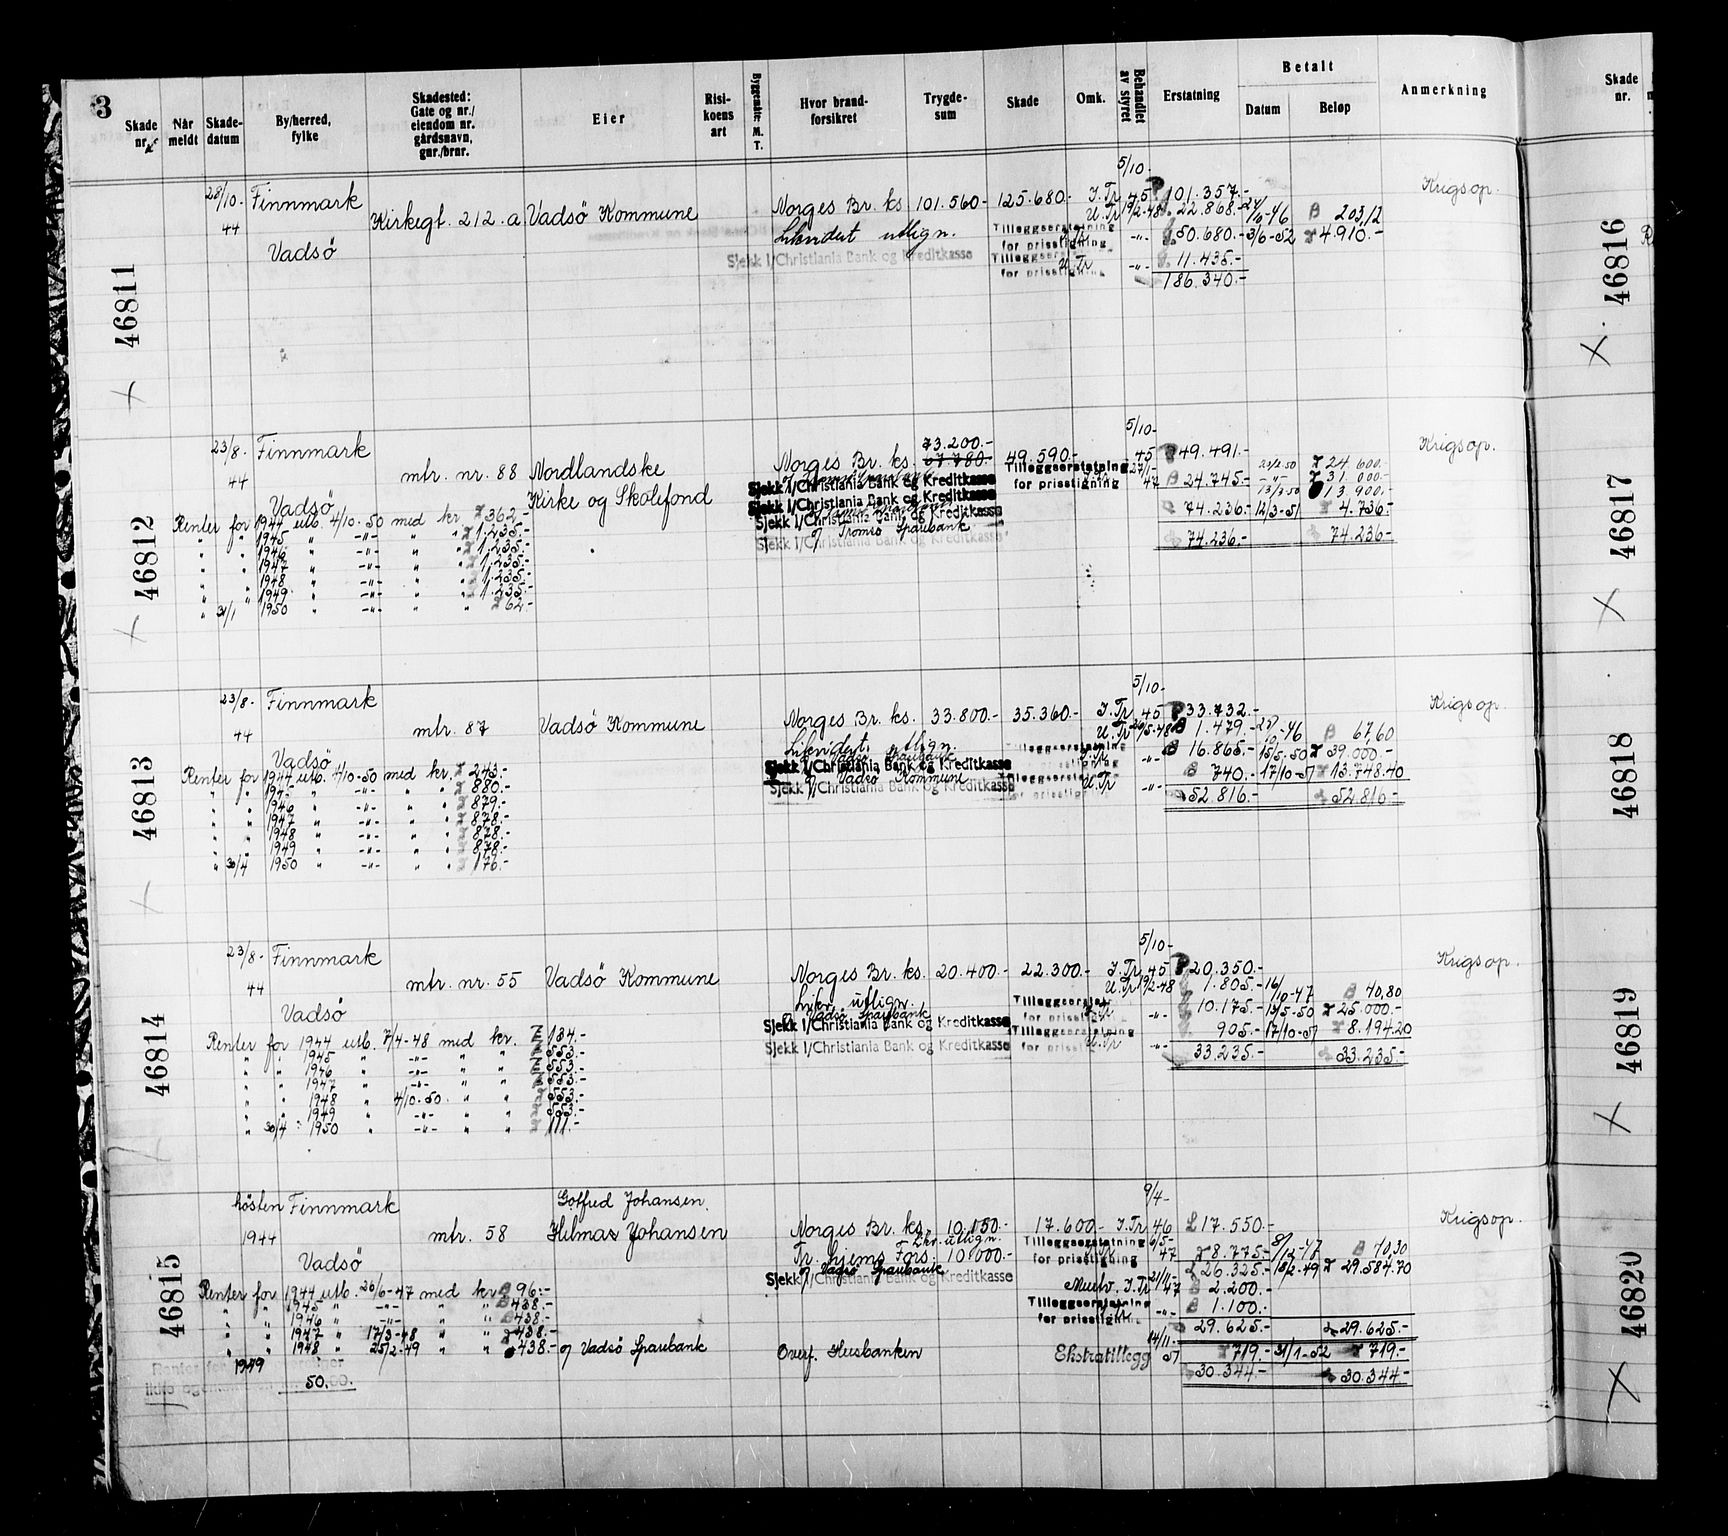 3
Skade nr. Når meldt Skade-datum By/herred, fylke Skadested: Gate og nr./ eiendom nr. gårdsnavn, gnr./brnr. Eier Risi-koens art Byggemåte: M. T. Hvor brand-forsikret Trygde-sum Skade Omk. Behandlet av styret Erstatning Betalt Datum Beløp Anmerkning
Skade nr.
46811
5/10-
28/10- Finnmark Kirkegt. 212.a Vadsö Kommune Norges Br. ks. 101.560- 125.680- I.Tr. 45 101.357.- Krigsop.
44 U.Tr 19/2-48 22.868.- 203,12
Likvidert utlign. Tilleggserstatning for prisstigning -"- 50.680.- 3/6-52 4.910.-
Vadsö
Sjekk l/Christiania Bank og Kreditkasse Tilleggserstatning for prisstigning U.Tr -"- 11.435.-
186.340.-
46812
5/10-
23/8- Finnmark mtr. nr. 88 Nordlandske Norges Br. ks. 73.200.- 67.780.- 49.590.- 45 49.491.- Krigsop.
44 Tilleggserstatning for prisstigning 47 24.745.- 24.600.
31.000.-
Vadsö Kirke og Skolefond 13.900.-
Sjekk l/Christiania Bank og Kreditkasse
Sjekk l/Christiania Bank og Kreditkasse
Sjekk l/Christiania Bank og Kreditkasse
74.236.- 12/3-51 4.736-
Tromsö Sparebank
Sjekk l/Christiania Bank og Kreditkasse
74.236.- 74.236-
Renter for 1944 utb. 4/10-50 med kr. 362-
" " 1945 " -"- " " 1.235.-
" " 1946 " -"- " " 1.235.-
" " 1947 " -"- " " 1.235.-
" " 1948 " -"- " " 1.235.-
" " 1949 " -"- " " 1.235.-
" 31/1 1950 " -"- " " 62.-
46813
5/10-
23/8- Finnmark mtr. 87 Vadsö Kommune Norges Br. ks. 33.800.- 35.360.- I.Tr. 45 33.732.- Krigsop.
44 U.Tr 1.479.- 67,60
Likvidert utlign. Tilleggserstatning -"- 16.865.- 15/5-50 39.000.-
Vadsö
Vadsö Sparebank
Sjekk l/Christiania Bank og Kreditkasse
Vadsö Kommune Tilleggserstatning for prisstigning U.Tr -"- 740.- 17/10-51 13.748.40
Sjekk l/Christiania Bank og Kreditkasse 52.816.- 52.816-
Renter for 1944 utb. 4/10-50 med kr. 243.-
" " 1945 " -"- " " 880.-
" " 1946 " -"- " " 879.-
" " 1947 " -"- " " 878.-
" " 1948 " -"- " " 878.-
" " 1949 " -"- " " 878.-
" 30/4 1950 " -"- " " 176.-
46814
5/10-
23/8- Finnmark mtr. nr. 55 Vadsö Kommune Norges Br. ks. 20.400.- 22.300.- I.Tr. 45 20.350.- Krigsop.
44 U.Tr 19/2-48 1.805.- 16/10-47 40,80
Likv. utlign. Tilleggserstatn. -"- 10.175.- 15/5-50 25.000.-
Vadsö
Vadsö Sparebank
Sjekk l/Christiania Bank og Kreditkasse Tilleggserstatning for prisstigning U.Tr -"- 905.- 17/10-51 8.194.20
Sjekk l/Christiania Bank og Kreditkasse 33.235.- 33.235.-
Renter for 1944 utb. 7/4-48 med kr. 134.-
" " 1945 " -"- " " 553.-
" " 1946 " -"- " " 553.-
" " 1947 " -"- " " 553.-
" " 1948 " 4/10-50 " " 553.-
" " 1949 " -"- " " 553.-
" 30/4 1950 " -"- " " 111.-
46815
9/4-
hösten Finnmark Gotfred Johansen.
1944 mtr. 58 Hilmar Johansen Norges Br. ks. 10.150.- 17.600- I.Tr. 46 17.550.- Krigsop.
Likv. utlign. Tilleggserstatning for prisstigning 6/5-47 8.775.- 8/12-47 40,30
Vadsö Tr. Hjems Fors. 10.000.- 26.325.- 18/2-49 29.584.70
Vadsö Sparebank
Sjekk l/Christiania Bank og Kreditkasse
I.Tr 21/11-47 2.200.-
Tilleggserstatning for prisstigning -"- 1.100.-
29.625.- 29.625.-
Renter for 1944 utb. 26/6-47 med kr 96:-
" " 1945 " -"- " " 438.-
" " 1946 " -"- " " 438.-
" " 1947 " 17/3-48 " " 438.-
" " 1948 " 25/2-49 " " 438.- Vadsö Sparebank Overf. Husbanken Ekstratillegg 14/11-51 719.- 31/1-52 719.-
1949
50.
30.344.- 30.344.-
46816
46817
46818
46819
46820